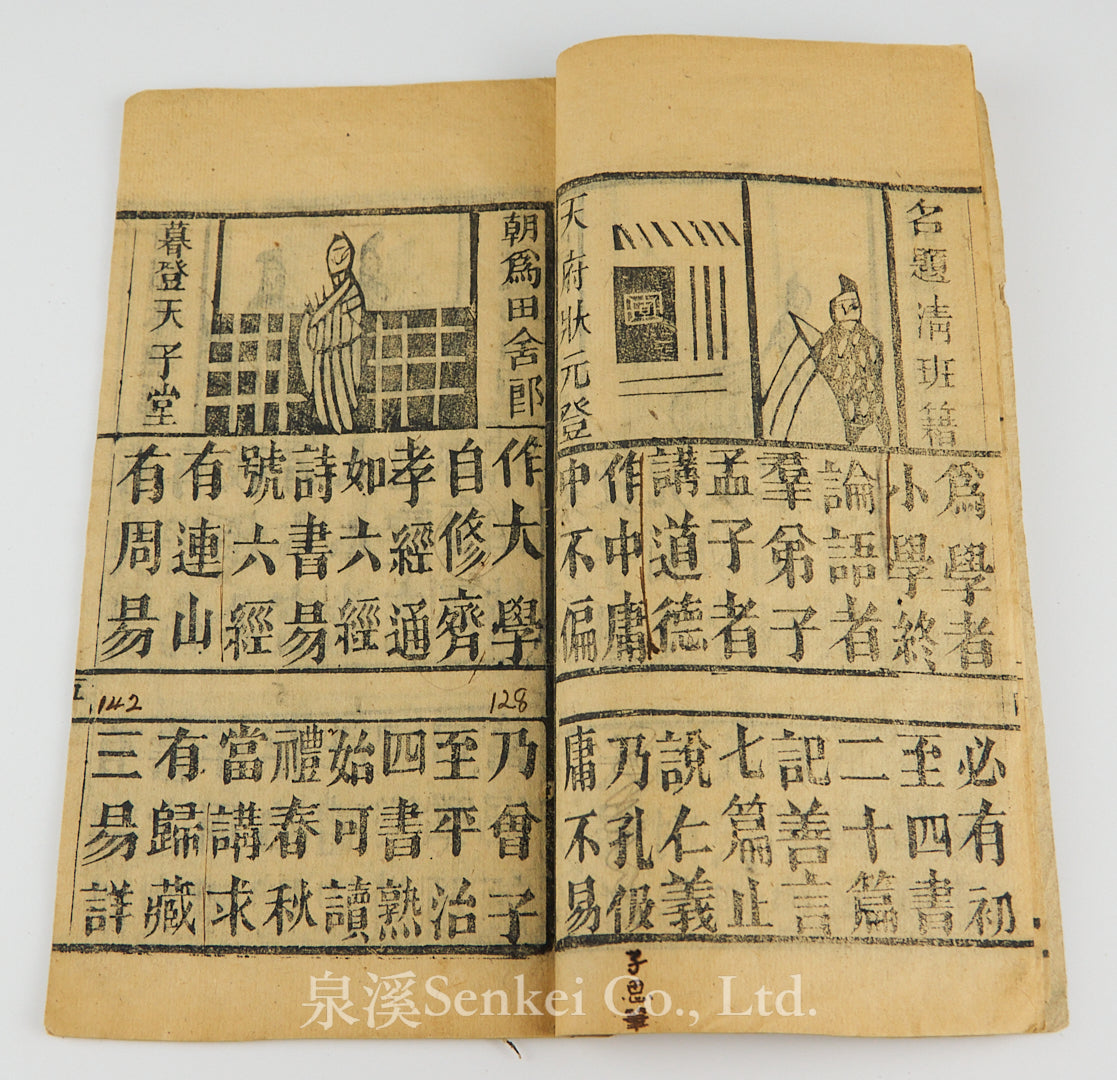 名題清班籍
天府狀元登
爲學者
必有初
小學終
至四書
論語者
二十篇
羣弟子
記善言
孟子者
七篇止
講道德
說仁義
作中庸
乃孔伋
中不偏
庸不易
子思筆
朝爲田舍郎
暮登天子堂
作大學
乃曾子
自修齊
至平治
孝經通
四書熟
如六經
始可讀
詩書易
禮春秋
號六經
當講求
有連山
有歸藏
有周易
三易詳
128
142
五
泉溪Senkei Co., Ltd.